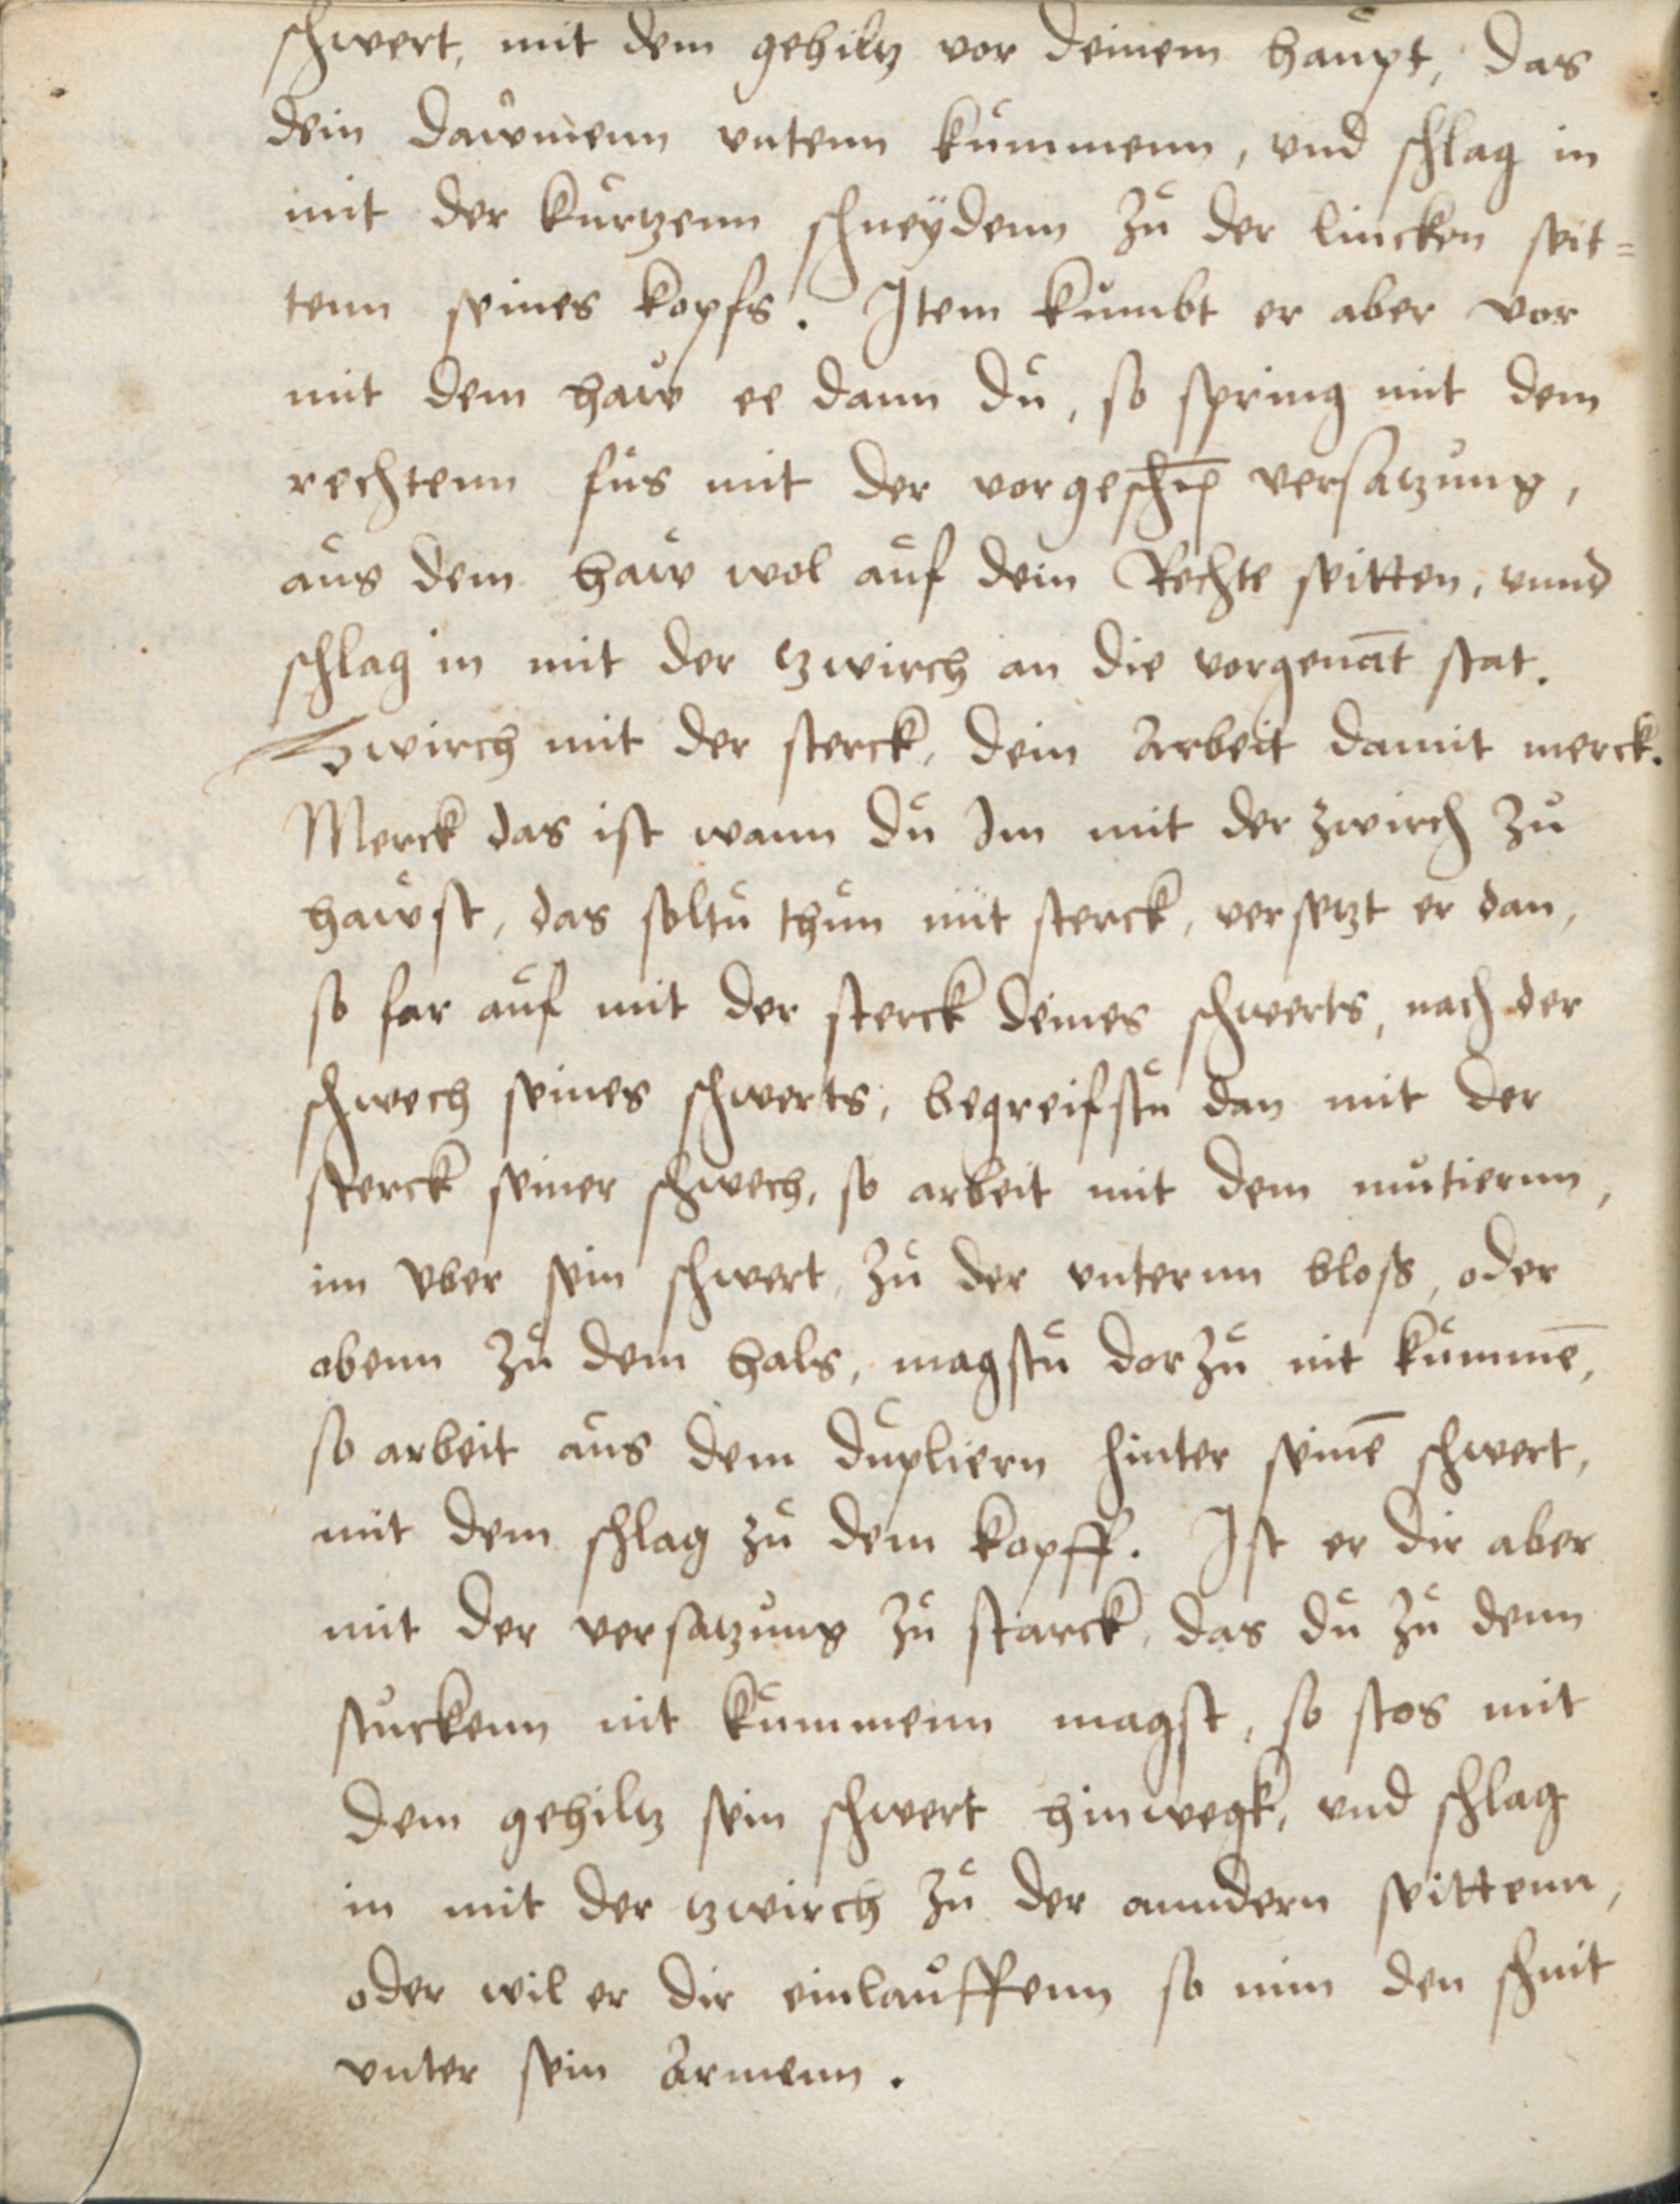 schwert, mit dem gehiltz vor deinem haupt, das
dein dawmenn vntenn kummenn, vnd schlag in
mit der kurtzenn schneÿdenn zu der lincken seit=
tenn seines kopfs. Item kumbt er aber vor
mit dem haw ee dann du, so spring mit dem
rechtenn fus mit der versatzung,
aus dem haw wol auf dein Rechte seitten, vnnd
schlag in mit der tzwirch an die vorgenāt stat.
Zwirch mit der sterck, dein Arbeit damit merck.
Merck das ist wann du Im mit der zwirch zu
hawst, das soltu thun mit sterck, versetzt er dan,
so far auf mit der sterck deines schwerts, nach der
schwech seines schwerts, begreifstu dan mit der
sterck seiner schwech, so arbeit mit dem mutiernn,
im vber sein schwert, zu der vnternn bloss, oder
obenn zu dem hals, magstu dorzu nit kummē,
so arbeit aus dem dupliern hinter seinē schwert,
mit dem schlag zu dem kopff. Ist er dir aber
mit der versatzung zu starck, das du zu denn
stuckenn nit kummenn magst, so stos mit
dem gehiltz sein schwert hinwegk, vnd schlag
in mit der tzwirch zu der anndern seittenn,
oder wil er dir einlauffenn so nim den schnit
vnter sein Armenn.